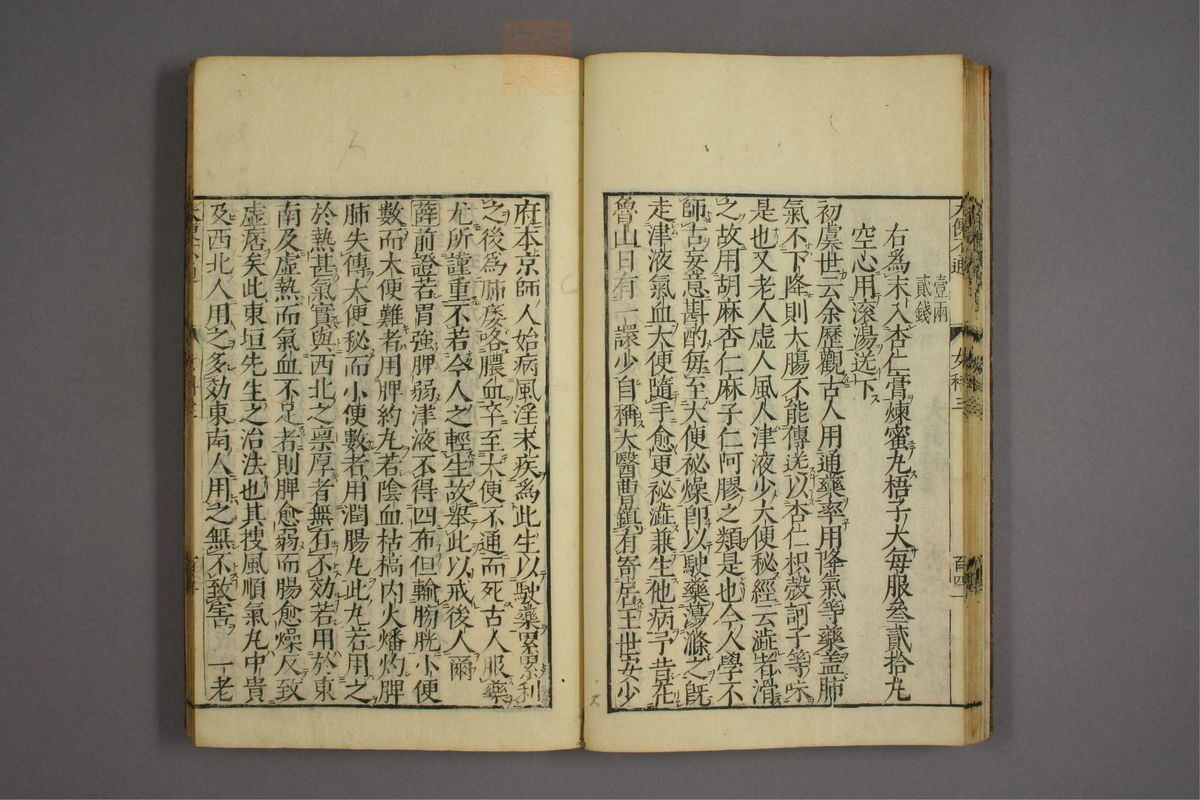 壹兩
貳錢
右爲末入杏仁膏煉蜜丸梧子大每服叁貳拾丸
空心用滾湯送下
初虞世云余歷觀古人用通藥率用降氣等藥盖肺
氣不下降則大腸不能傳送以杏仁枳殼訶子等味
是也又老人虛人風人津液少大便秘經云澁者滑
之故用胡麻杏仁麻子仁阿膠之類是也今人學不
師古妄意斟酌每至大便祕燥卽以駛藥蕩滌之旣
走津液氣血大便隨手愈更秘澁兼生他病予昔在
魯山日有一譔少自稱大醫曹鎭有寄居王世安少
府本京師人始病風淫末疾爲此生以駛藥累累利
之後爲肺疾咯膿血卒至大便不通而死古人服藥
尤所謹重不若今人之輕生故舉此以戒後人爾
薛前證若胃強脾弱津液不得四布但輸膀胱小便
數而大便難者用脾約丸若陰血枯槁內火燔灼脾
肺失傳大便秘而小便數者用潤腸丸此丸若用之
於熱甚氣實與西北之禀厚者無有不効若用於東
南及虛熱而氣血不足者則脾愈弱而腸愈燥反致
虛痞矣此東垣先生之治法也其搜風順氣丸中貴
及西北人用之多効東南人用之無不致害　一老
大便不通
女科三
百四